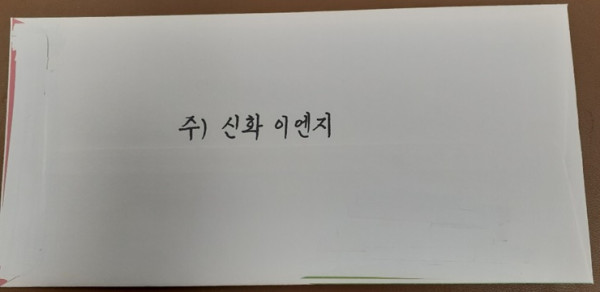 주) 신화 이엔지